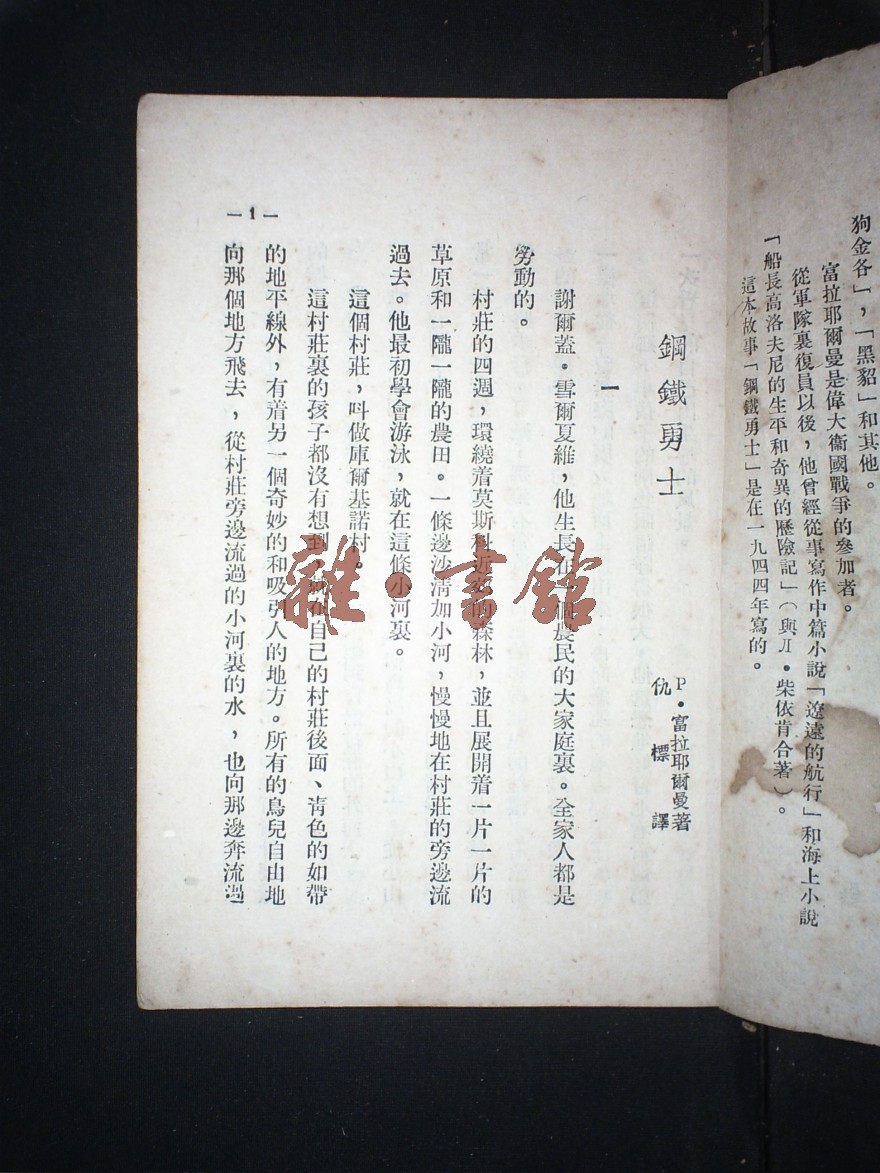 狗金各」，「黑貂」和其他。
富拉耶爾曼是偉大衞國戰爭的參加者。
從軍隊裏復員以後，他曾經從事寫作中篇小說「遼遠的航行」和海上小說
「船長高洛夫尼的生平和奇異的歷險記」（與Л·柴依肯合著）。
這本故事「鋼鐵勇士」是在一九四四年寫的。
鋼鐵勇士
P·富拉耶爾曼著
仇標譯
一
謝爾蓋·雪爾夏維，他生長在一個農民的大家庭裏。全家人都是
勞動的。
村莊的四週，環繞着莫斯科近郊的森林，並且展開着一片一片的
草原和一隴一隴的農田。一條邊沙淸加小河，慢慢地在村莊的旁邊流
過去。他最初學會游泳，就在這條小河裏。
這個村莊，叫做庫爾基諾村。
這村莊裏的孩子都沒有想到，就在自己的村莊後面、靑色的如帶
的地平線外，有着另一個奇妙的和吸引人的地方。所有的鳥兒自由地
向那個地方飛去，從村莊旁邊流過的小河裏的水，也向那邊奔流過
—1—
雜·書館